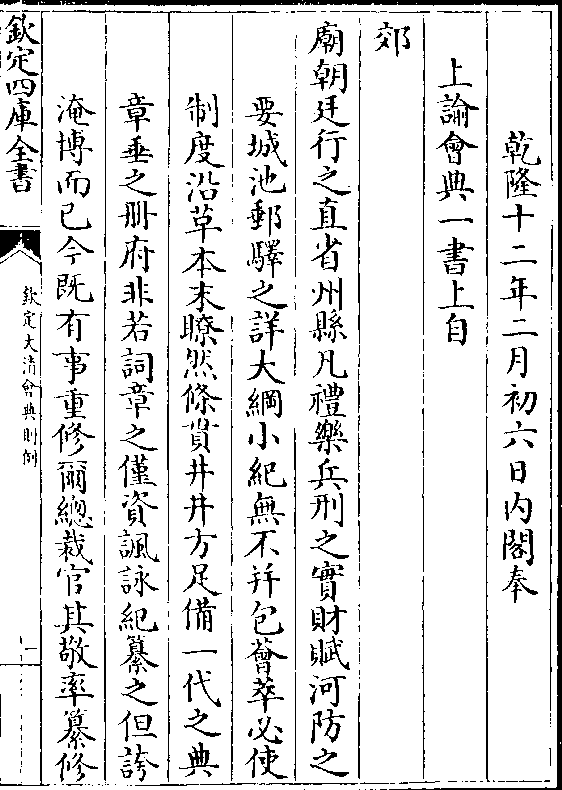 乾隆十二年二月初六日内閣奉
上諭會典一書上自
郊
廟朝廷行之直省州縣凡禮樂兵刑之實財賦河防之
要城池郵驛之詳大綱小紀無不并包薈萃必使
制度沿革本末瞭然條貫井井方足備一代之典
章垂之册府非若詞章之僅資諷詠紀纂之但誇
淹博而已今既有事重修爾總裁官其敬率纂修
欽定四庫全書
欽定大清會典則例
一